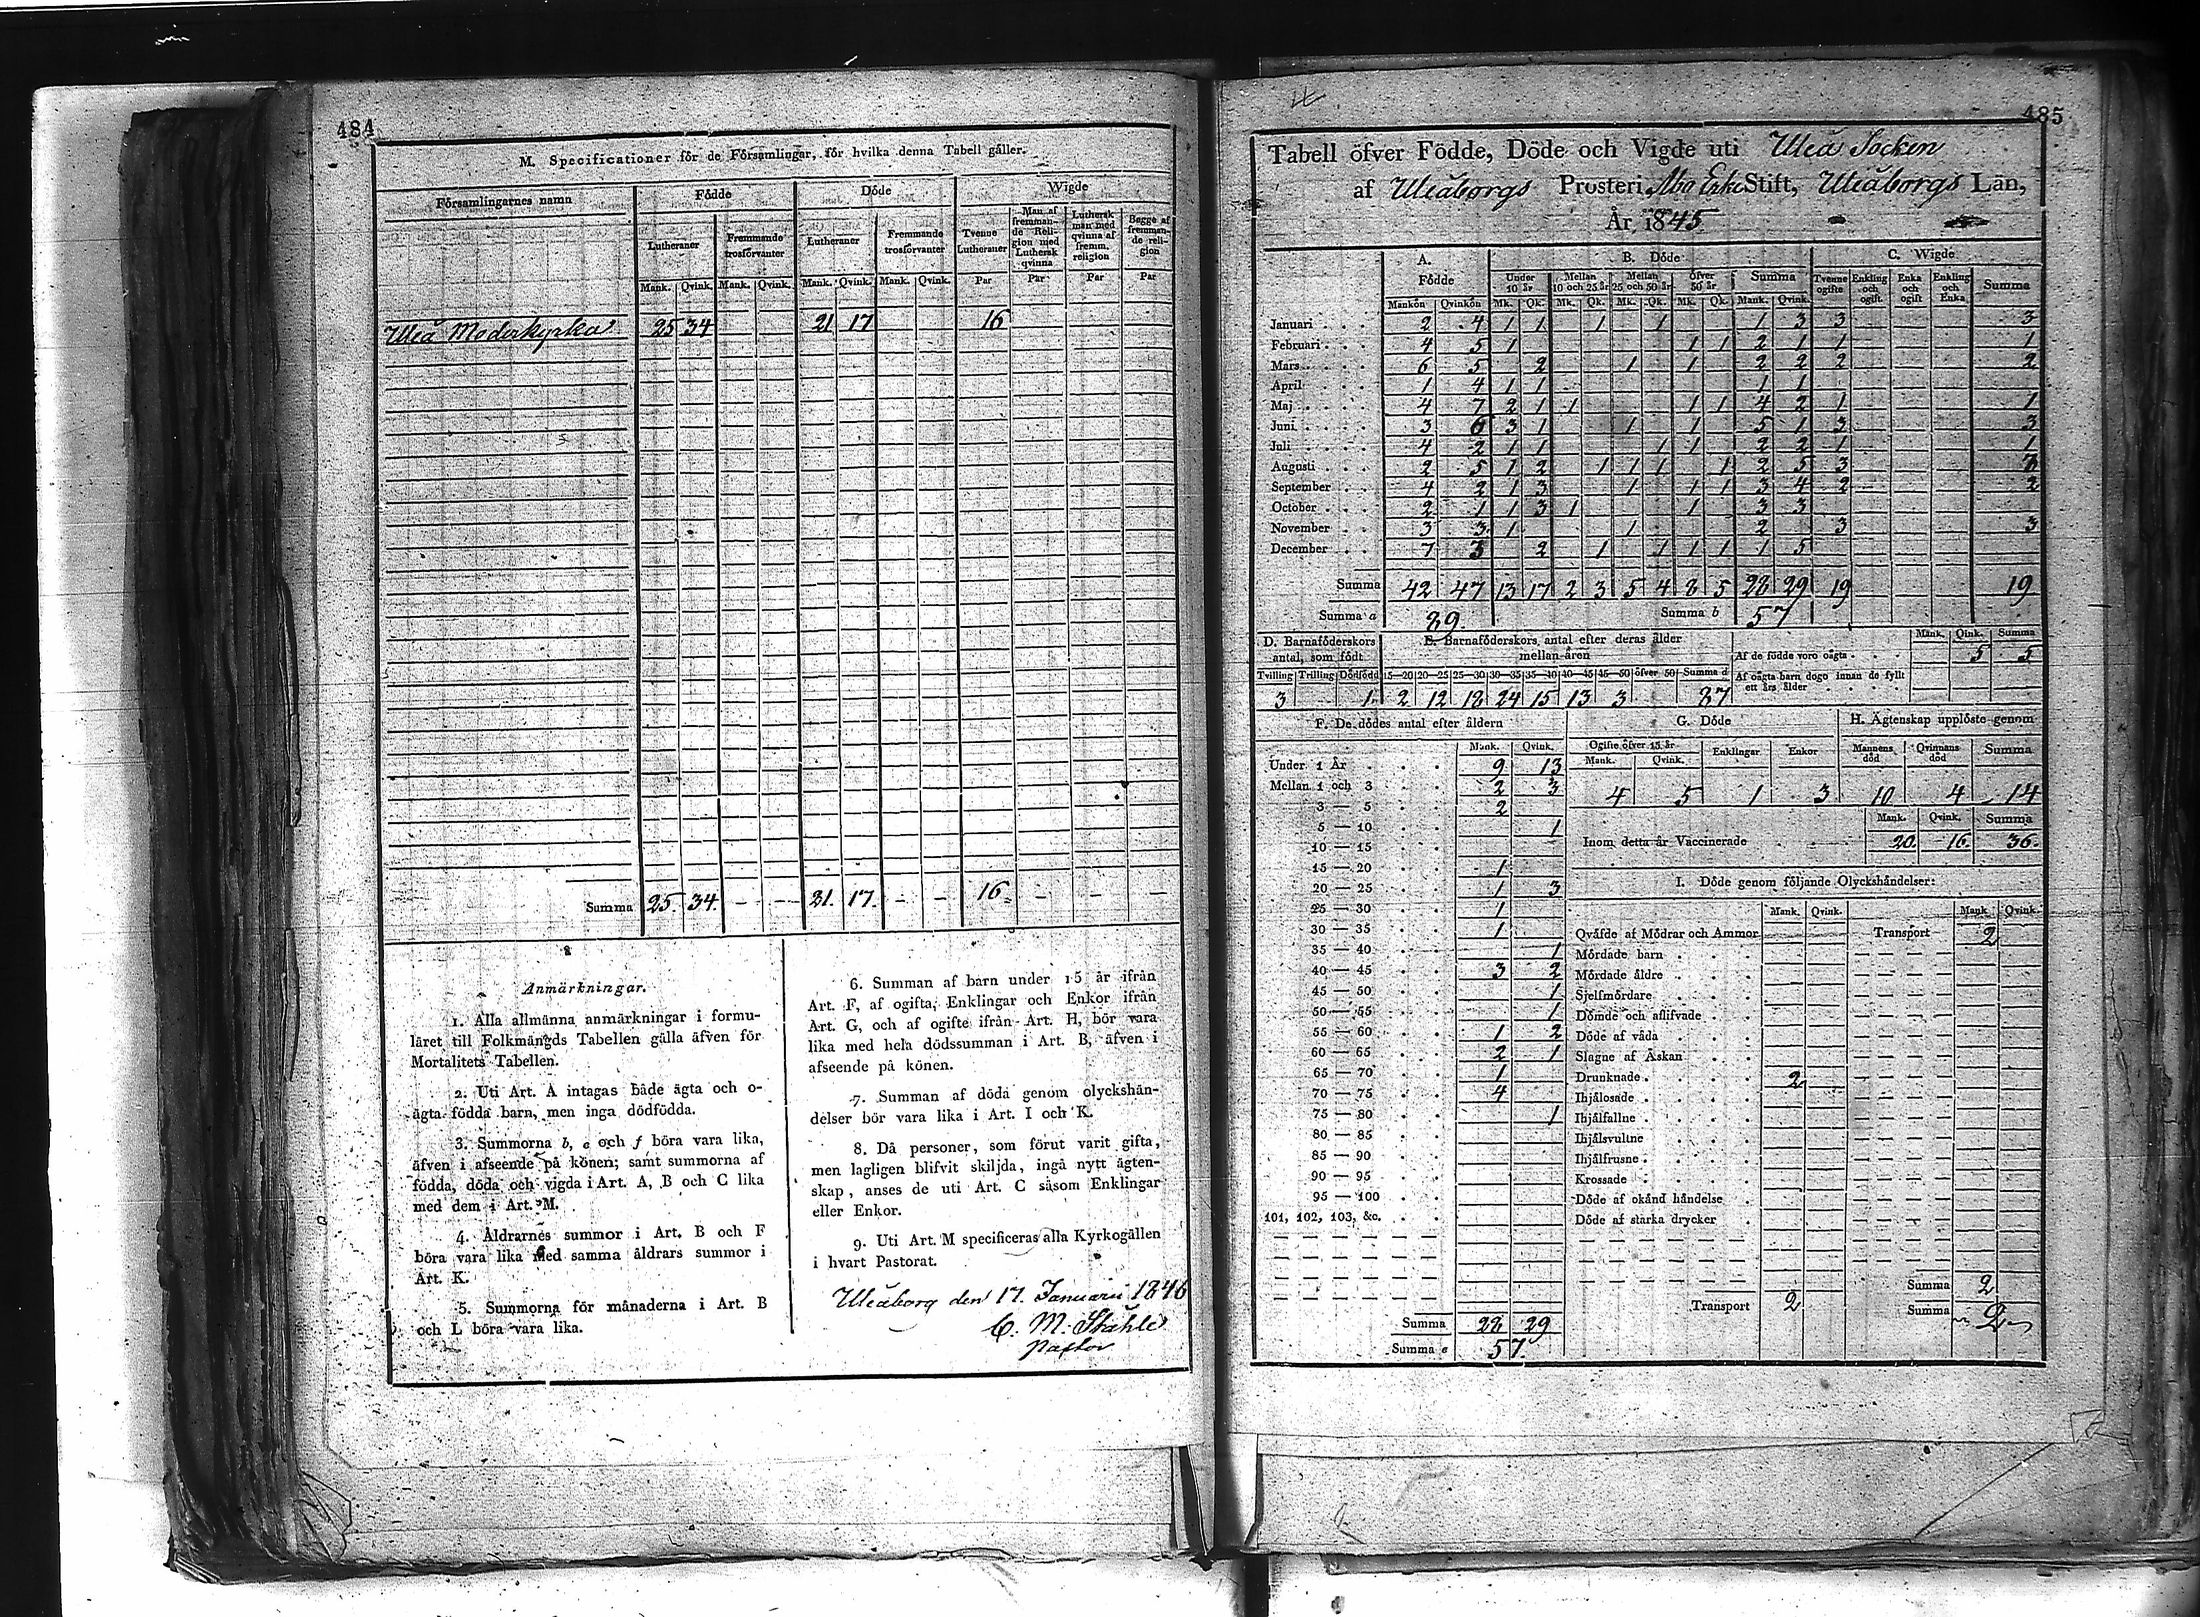 484
M. Specificationer för de Församlingar, för hvilka denna Tabell gäller.
Församlingarnes namn Födde Döde Wigde
Lutheraner Fremmande trosförvanter Lutheraner Fremmande trosförvanter Tvenne Lutheraner Man af fremmande Religion med Luthersk qvinna Luthersk man med qvinna af fremm. religion Begge af fremmande religion
Mank. Qvink. Mank. Qvink. Mank. Qvink. Mank. Qvink. Par Par Par Par
Uleå Moderkyrka 25 34 21 17 16
Summa 25. 34. - - 21. 17. - - 16 - - -
Anmärkningar.
1. Alla allmänna anmärkningar i formu-
läret till Folkmängds Tabellen gälla äfven för
Mortalitets Tabellen.
2. Uti Art. A intagas både ägta och o-
ägta födda barn, men inga dödfödda.
3. Summorna b, e och f böra vara lika,
äfven i afseende på könen; samt summorna af
födda, döda och vigda i Art. A, B och C lika
med dem i Art. M.
4. Åldrarnes summor i Art. B och F
böra vara lika med samma åldrars summor i
Art. K.
5. Summorna för månaderna i Art. B
och L böra vara lika.
6. Summan af barn under 15 år ifrån
Art. F, af ogifta, Enklingar och Enkor ifrån
Art. G, och af ogifte ifrån Art. H, bör vara
lika med hela dödssumman i Art. B, äfven i
afseende på könen.
7. Summan af döda genom olyckshän-
delser bör vara lika i Art. I och K.
8. Då personer, som förut varit gifta,
men lagligen blifvit skiljda, ingå nytt ägten-
skap, anses de uti Art. C såsom Enklingar
eller Enkor.
9. Uti Art. M specificeras alla Kyrkogällen
i hvart Pastorat.
Uleåborg den 17. Januarii 1846
C. M. Ståhle
Pastor
485
Tabell öfver Födde, Döde och Vigde uti Uleå Socken
af Uleåborgs Prosteri, Åbo Erke Stift, Uleåborgs Län,
År 1845
A. Födde B. Döde C. Wigde
Under 10 år Mellan 10 och 25 år Mellan 25 och 50 år öfver 50 år Summa Tvenne ogifte Enkling och ogift Enka och ogift Enkling och Enka Summa
Mankön Qvinkön Mk. Qk. Mk. Qk. Mk. Qk. Mk. Qk. Mank. Qvink.
Januari 2 4 1 1 1 1 1 3 3 3
Februari 4 5 1 1 1 2 1 1 1
Mars 6 5 2 1 1 2 2 2 2
April 1 4 1 1 1 1
Maj 4 7 2 1 1 1 1 4 2 1 1
Juni 3 6 3 1 1 1 5 1 3 3
Juli 4 2 1 1 1 1 2 2 1 1
Augusti 2 5 1 2 1 1 1 1 2 5 3 3
September 4 2 1 3 1 1 1 3 4 2 2
October 2 1 1 3 1 1 3 3
November 3 3 1 1 2 3 3
December 7 3 2 1 1 1 1 1 5
Summa 42 47 13 17 2 3 5 4 8 5 28 29 19 19
Summa a 89. Summa b 57
D. Barnaföderskors antal, som födt
Tvilling Trilling Dödfödd
3 1
E. Barnaföderskors antal efter deras ålder mellan åren
15—20 20—25 25—30 30—35 35—40 40—45 45—50 öfver 50 Summa d
2 12 18 24 15 13 3 87
Mank. Qink. Summa
Af de födde voro oägta 5 5
Af oägta barn dogo innan de fyllt ett års ålder
F. De dödes antal efter åldern
Mank. Qvink.
Under 1 År 9 13
Mellan 1 och 3 2 3
3 — 5 2
5 — 10 1
10 — 15
15 — 20 1
20 — 25 1 3
25 — 30 1
30 — 35 1
35 — 40 1
40 — 45 3 2
45 — 50 1
50 — 55 1
55 — 60 1 2
60 — 65 2 1
65 — 70 1
70 — 75 4
75 — 80 1
80 — 85
85 — 90
90 — 95
95 — 100
101, 102, 103, &c.
Summa 28 29
Summa e 57.
G. Döde
Ogifte öfver 15 år Enklingar Enkor
Mank. Qvink.
4 5 1 3
H. Ägtenskap upplöste genom
Mannens död Qvinnans död Summa
10 4 14
Mank. Qvink. Summa
Inom detta år Vaccinerade 20. 16. 36.
I. Döde genom följande Olyckshändelser:
Mank. Qvink. Mank. Qvink.
Qväfde af Mödrar och Ammor Transport 2
Mördade barn
Mördade äldre
Sjelfmördare
Dömde och aflifvade
Döde af våda
Slagne af Åskan
Drunknade 2
Ihjälosade
Ihjälfallne
Ihjälsvultne
Ihjälfrusne
Krossade
Döde af okänd händelse
Döde af starka drycker
Summa 2
Transport 2 Summa 2